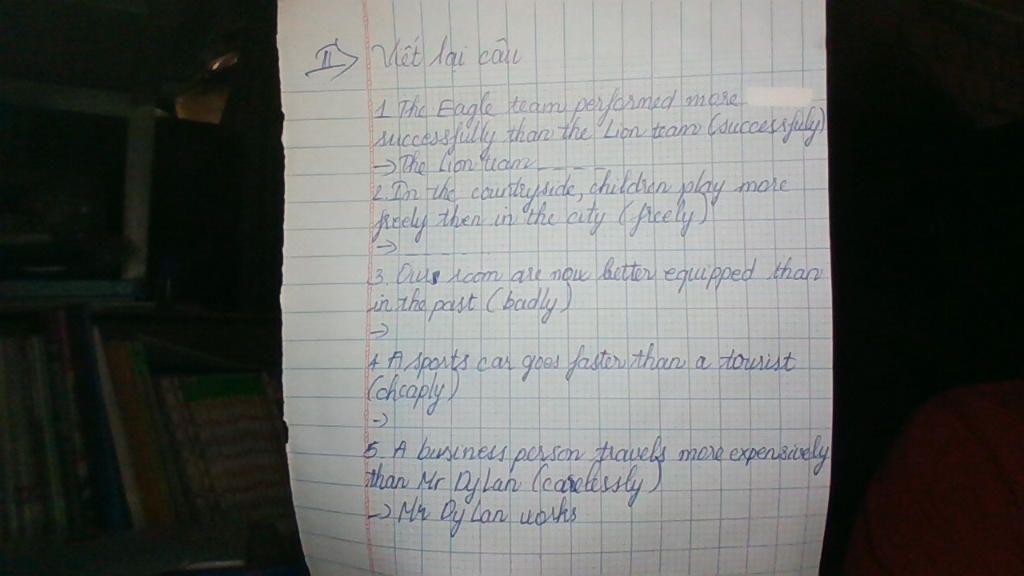 II Viết lại câu
1 The Eagle team performed more
successfully than the Lion team (successfuly)
→ The Lion team _ _ _ _
2. In the countryside, children play more
freely then in the city (freely)
→ _ _ _ _ _ _
3. Ours room are now better equipped than
in the past (badly)
→
4 A sports car goes faster than a tourist
(cheaply)
→
5. A business person travels more expensively
than Mr Dylan (carelessly)
→ Mr Dylan works